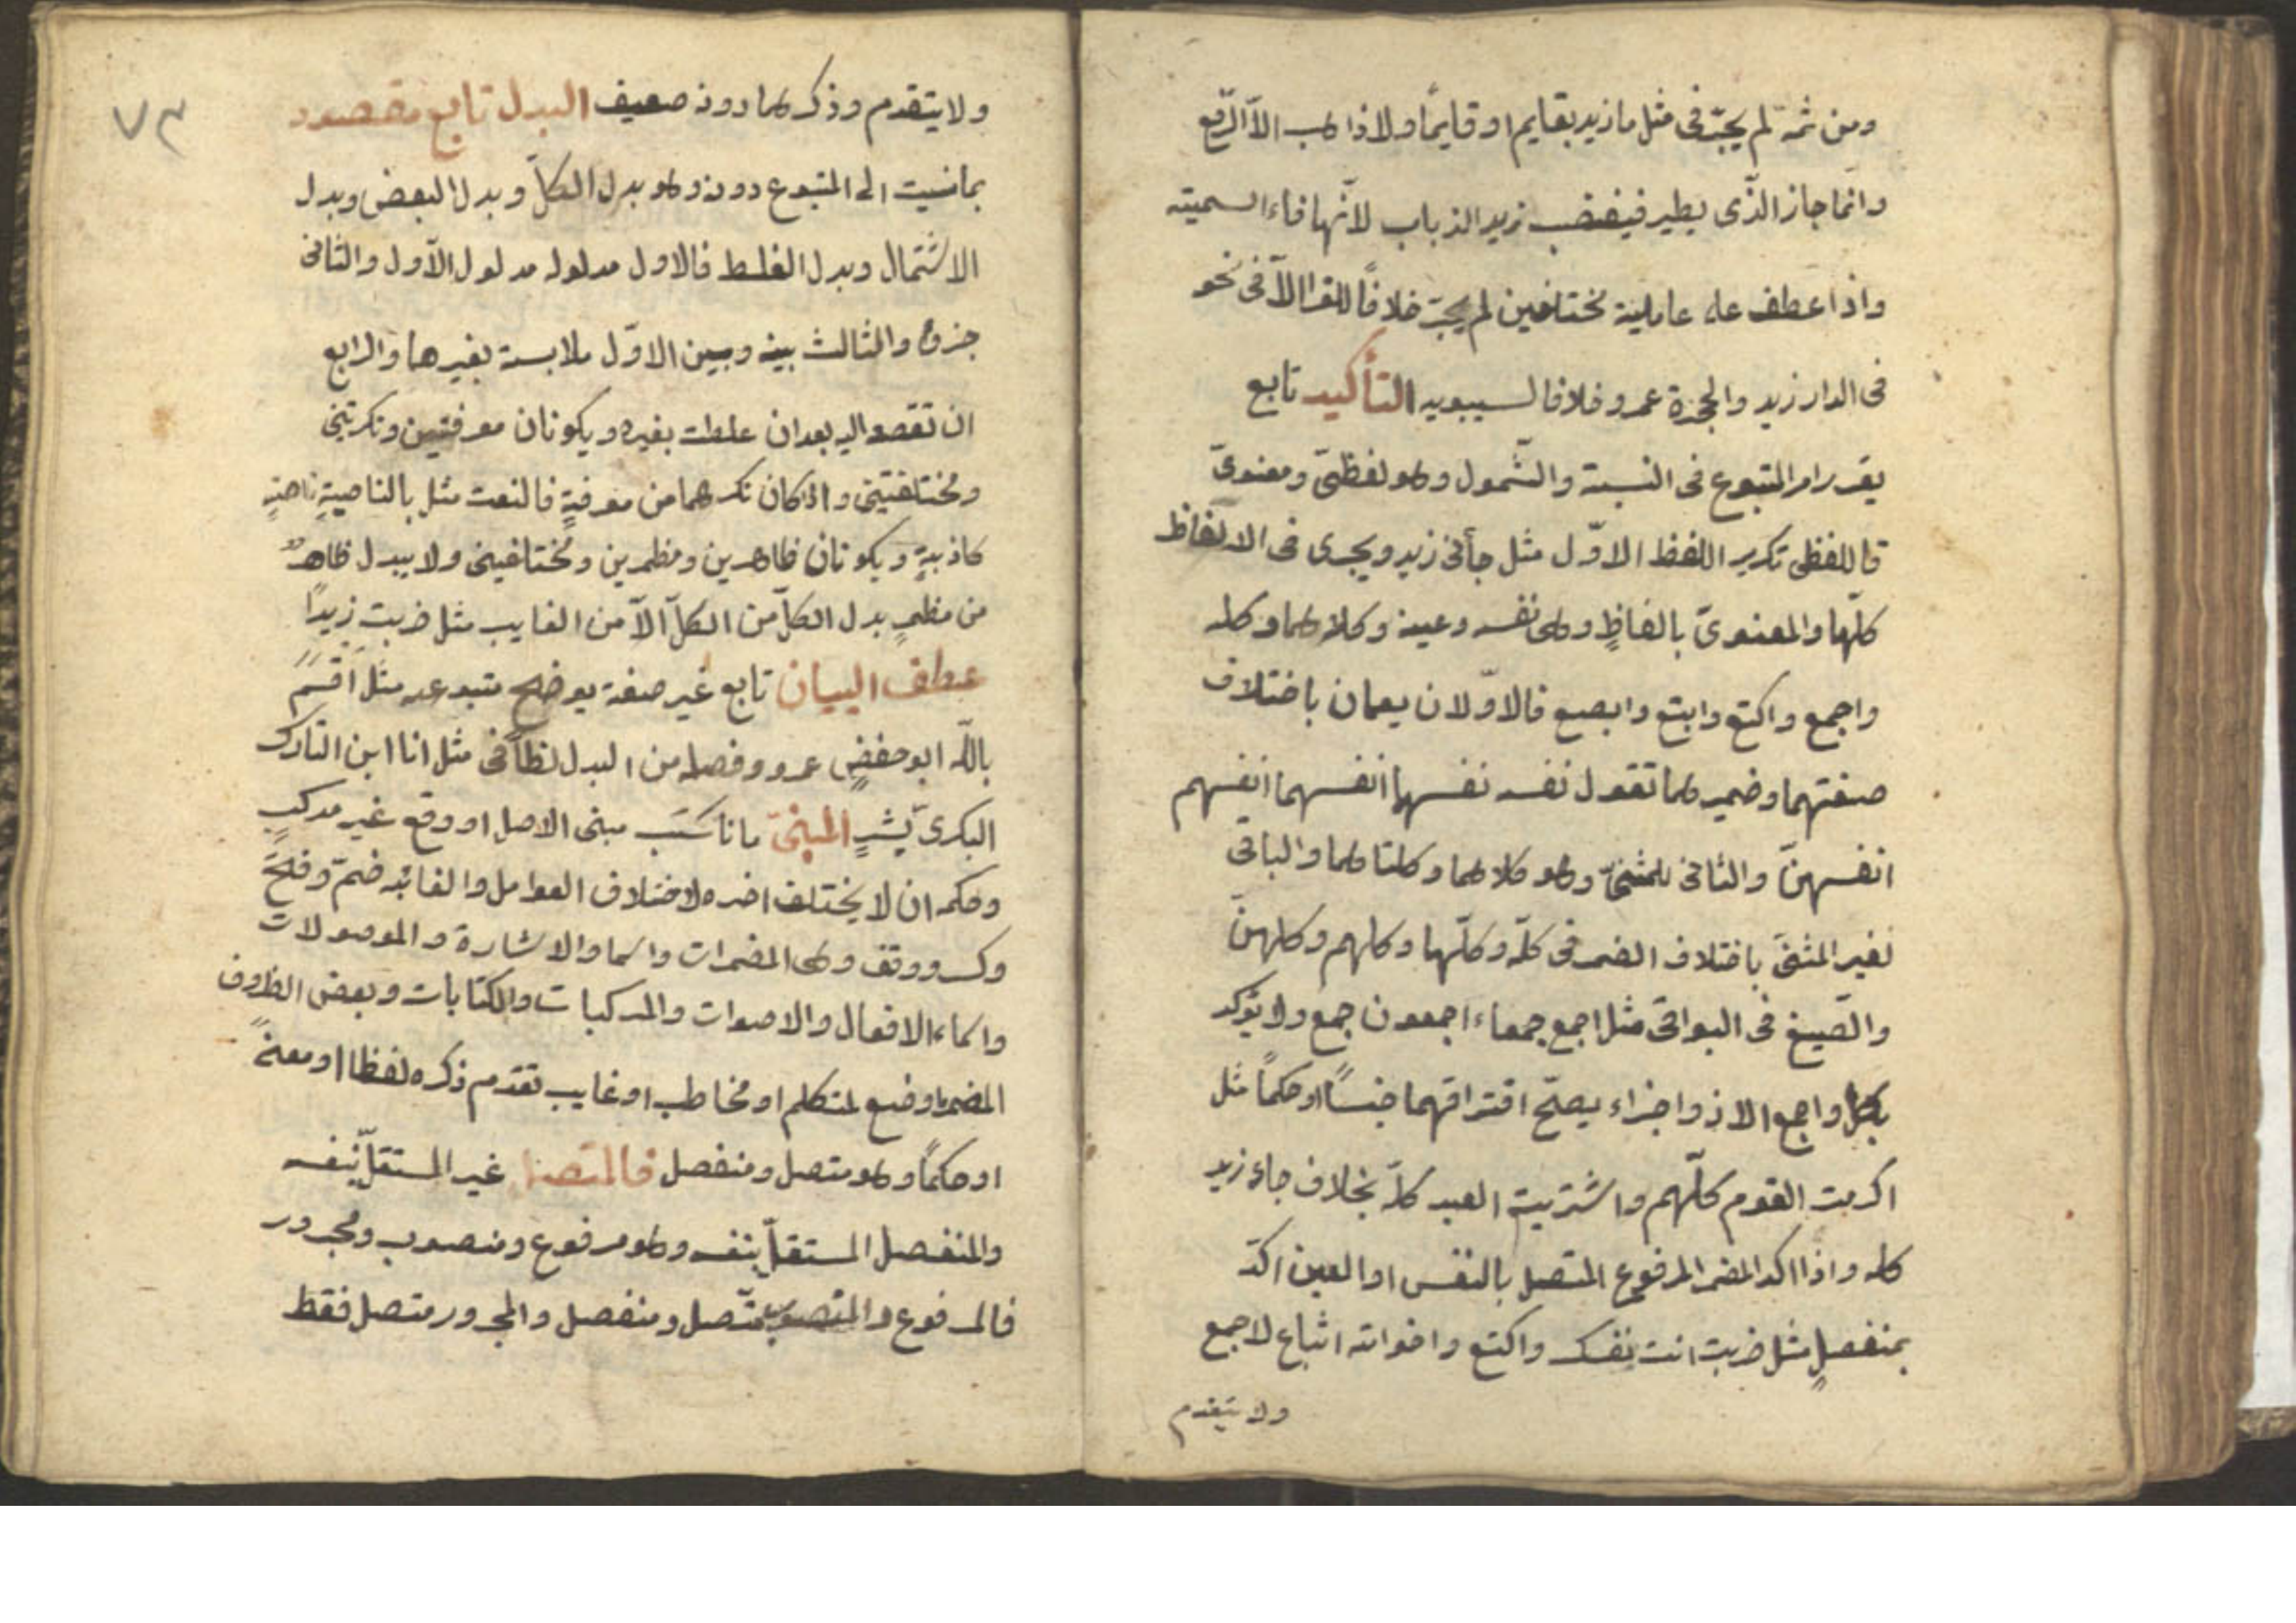 ومن ثمة لم يجز فى مثل ما زيد بقايم او قايمًا ولا ذاهب الاّ الرّفع
وانّما جاز الذّى يطير فيغضب زيد الذباب لانّها فاء السببية
واذا عطف على عاملين مختلفين لم يجز خلافًا للفرا الاّ فى نحو
فى الدار زيد والحجرة عمرو خلافا لسيبويه التأكيد تابع
يقرر امر المتبوع فى النسبة والشّمول وهو لفظىّ ومعنوىّ
فاللفظى تكرير اللفظ الاوّل مثل جأنى زيد ويجرى فى الالفاظ
كلّها والمعنوىّ بالفاظٍ وهى نفسه وعينه وكلاهما وكله
واجمع واكتع وابتع وابصع فالاوّلان يعمان باختلاف
صيغتهما وضميرهما تقول نفسه نفسها انفسهما انفسهم
انفسهنّ والثانى للمثنىّ وهو كلاهما وكلتاهما والباقى
لغير المثنىّ باختلاف الضمير فى كلّه وكلّها وكلهم وكلهنّ
والصّيغ فى البواقى مثل اجمع جمعاء اجمعون جمع ولا يؤكد
بكل واجمع الا ذو اجزاء يصحّ افتراقهما حسًا او حكمًا مثل
اكرمت القوم كلّهم واشتريت العبد كلّه بخلاف جاء زيد
كله واذا اكد المضمر المرفوع المتصل بالنفس او العين اكّد
بمنفصلٍ مثل ضربت انت نفسك واكتع واخواته اتباع لاجمع
ولا يتقدم
٧٣
ولا يتقدم وذكرهما دونه ضعيف البدل تابع مقصود
بما نسبت الى المتبوع دونه وهو بدل الكلّ وبدل البعض وبدل
الاشتمال وبدل الغلط فالاول مدلوله مدلول الاّول والثانى
جزؤه والثالث بينه وبين الاوّل ملابسة بغيرهما والرابع
ان تقصد اليه بعد ان غلطت بغيره ويكونان معرفتين ونكرتين
ومختلفتين واذا كان نكرهما من معرفةٍ فالنعت مثل بالناصيةِ ناصيةٍ
كاذبةٍ ويكونان ظاهرين ومظمرين ومختلفين ولا يبدل ظاهرٌ
من مظمرٍ بدل الكلّ من الكلّ الاّ من الغايب مثل ضربته زيدًا
عطف البيان تابع غير صفة يوضح متبوعه مثل اَقسَمَ
باللّه ابو حفضٍ عمر وفصله من البدل لفظاً فى مثل انا ابن التارك
البكرىّ بشرٍ المبنىّ ما ناسَبَ مبنى الاصل او وقع غير مركبٍ
وحكمه ان لا يختلف اخره لاختلاف العوامل والقابه ضمّ وفتحٌ
وكسر ووقف وهى المضمرات واسماء الاشارة والموصولات
واسماء الافعال والاصوات والمركبات والكنايات وبعض الظروف
المضمر ما وضع لمتكلم او مخاطب او غايب تقدم ذكره لفظا او معنىً
او حكمًا وهو متصل ومنفصل فالمتصل غير المستقلّ بنفسه
والمنفصل المستقلّ بنفسه وهو مرفوع ومنصوب ومجرور
فالمرفوع والمنصوب متّصل ومنفصل والمجرور متصل فقط